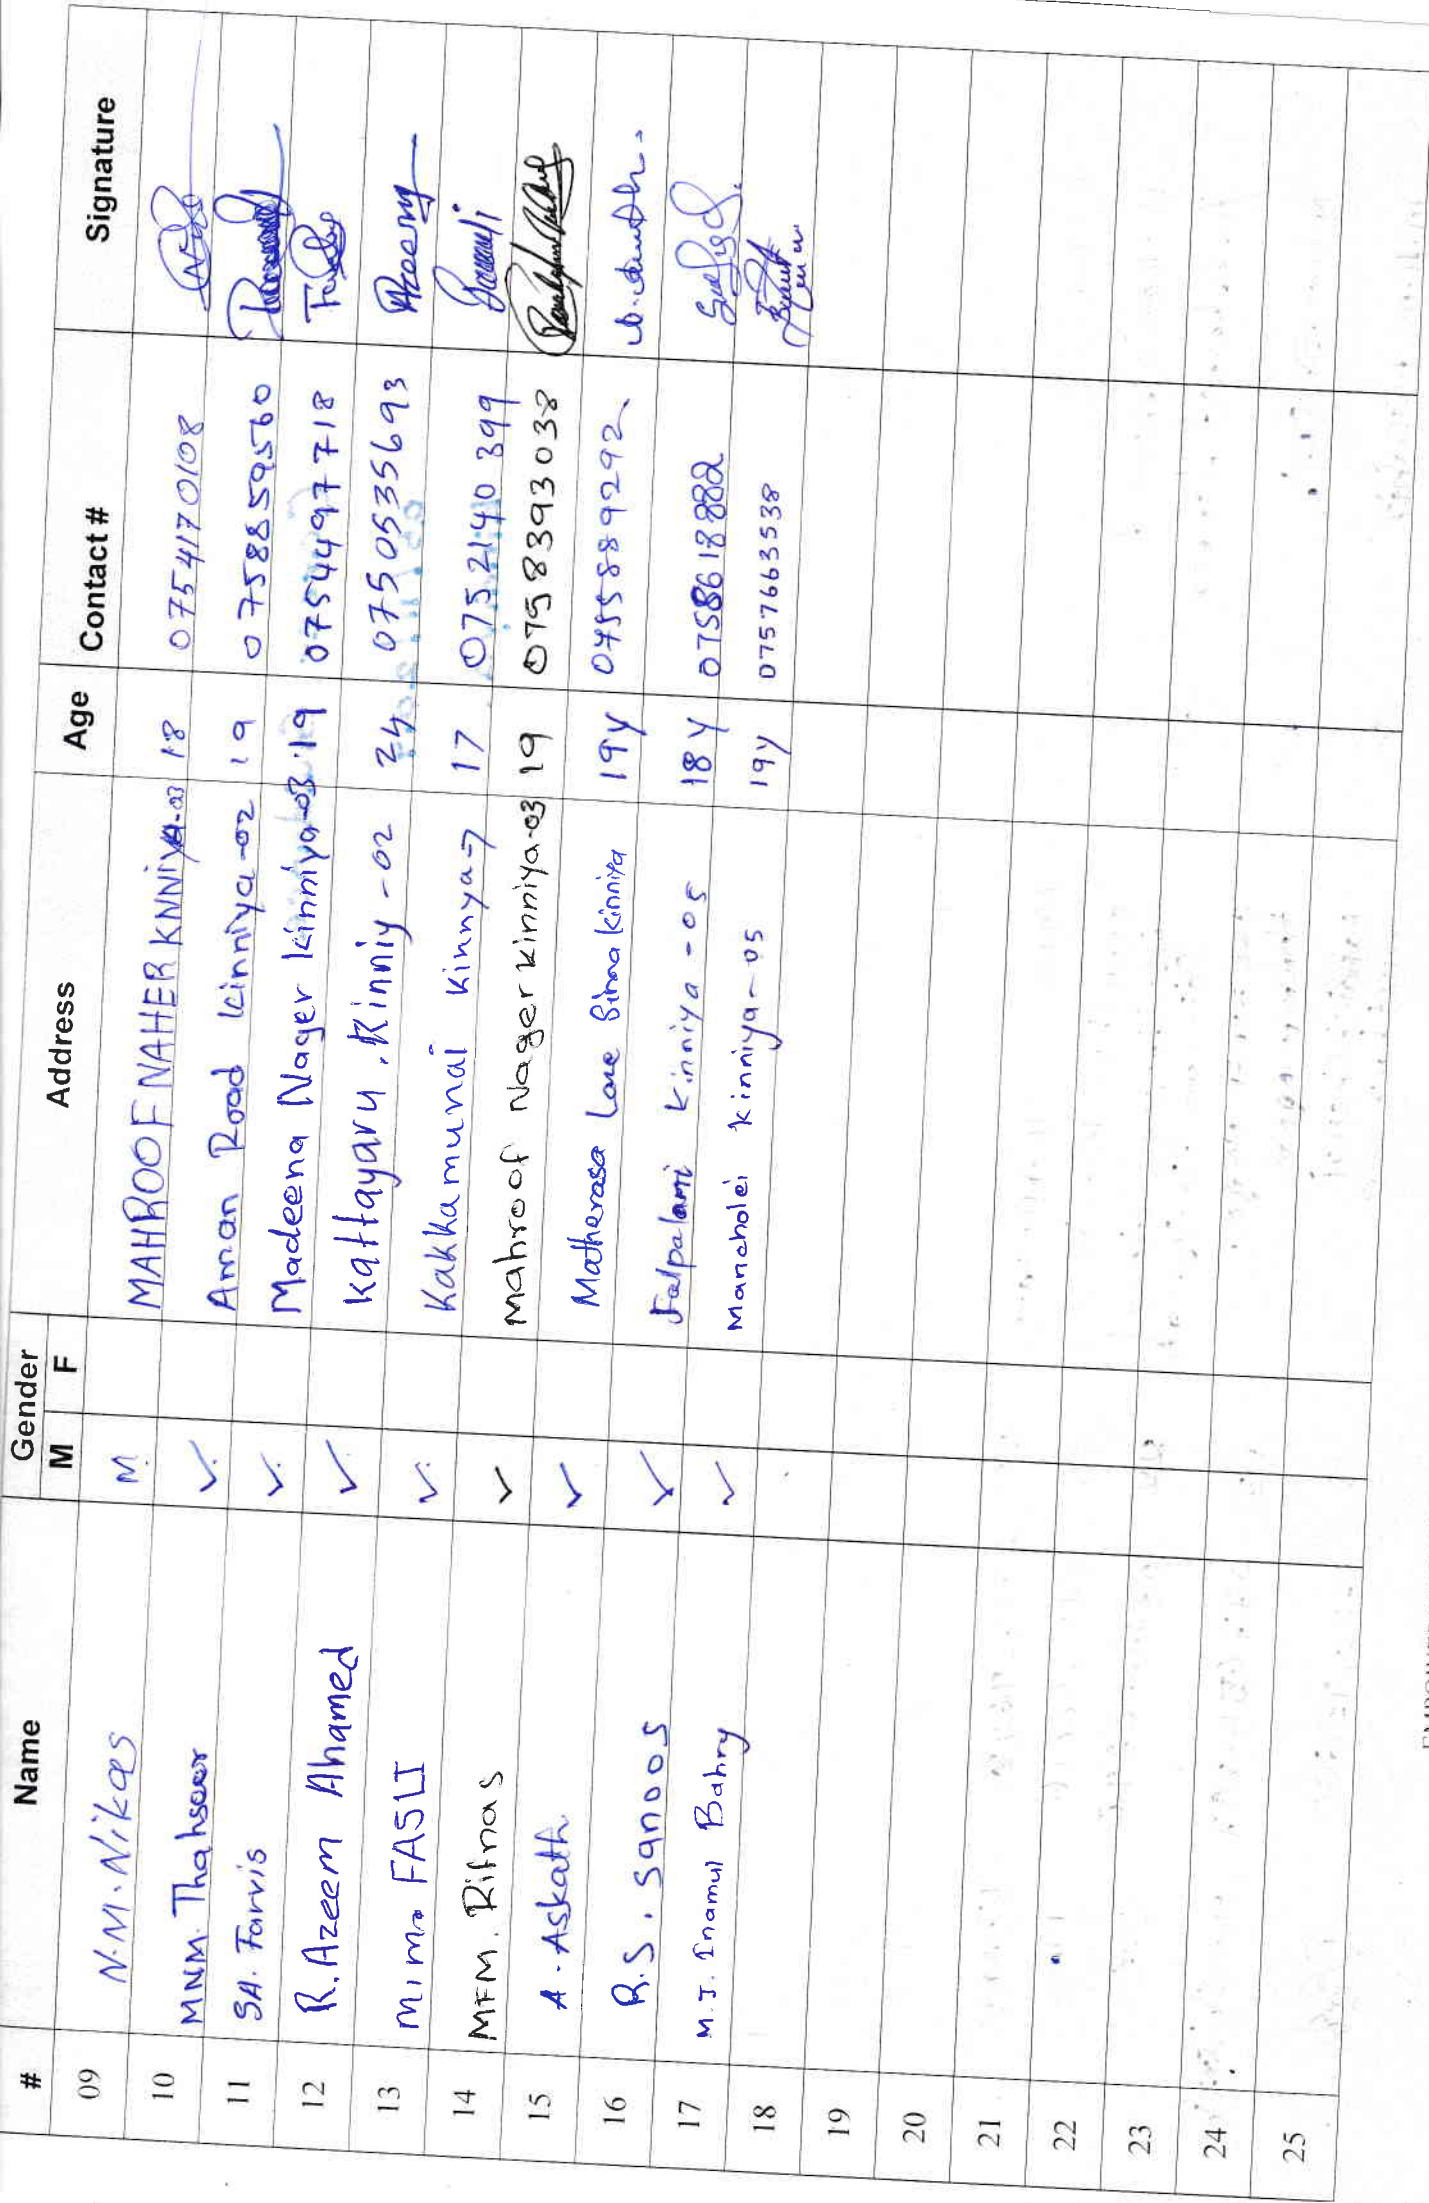 # Name Gender Address Age Contact # Signature
M F
09 N.M. Nikas M. MAHROOF NAHER KNNiyA-03 18 0754170108
10 MNM. Thahseer ✓. Aman Road kinniya-02 19 0758859560
11 SA. Farvis ✓. Madeena Nager kinniya-03 19 0754497718
12 R. Azeem Ahamed ✓. Kattayaru, Kinniy-02 24 0750535693 Azeem
13 M.I.M. FASLI ✓. Kakkamunai kinnya-7 17 0752140399
14 MFM. Rifnas ✓ Mahroof Nager kinniya-03 19 0758393038
15 A. Askath ✓ Matherasa Lane kinniya 19y 0755889292
16 R.S. Sanoos ✓ kinniya-05 18y 0758618882
17 M.J. Inamul Bahry ✓ Mancholei kinniya-05 19y 0757663538
18
19
20
21
22
23
24
25